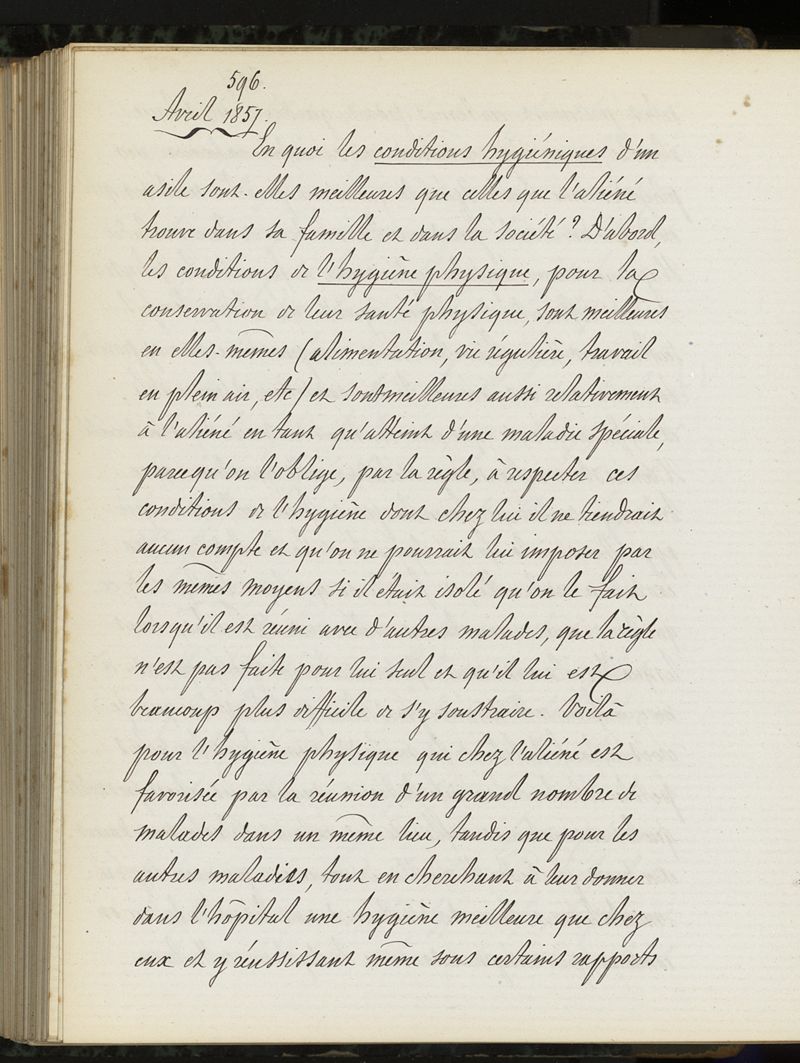 596.
Avril 1857.
En quoi les conditions hygiéniques d'un
asile sont-elles meilleures que celles que l'aliéné
trouve dans sa famille et dans la société ? D'abord,
les conditions de l'hygiène physique, pour la
conservation de leur santé physique, sont meilleures
en elles-mêmes (alimentation, vie régulière, travail
en plein air, etc) et sont meilleures aussi relativement
à l'aliéné en tant qu'atteint d'une maladie spéciale,
parcequ'on l'oblige, par la règle, à respecter ces
conditions de l'hygiène dont chez lui il ne tiendrait
aucun compte et qu'on ne pourrait lui imposer par
les mêmes moyens si il était isolé qu'on le fait
lorsqu'il est réuni avec d'autres malades, que la règle
n'est pas faite pour lui seul et qu'il lui est
beaucoup plus difficile de s'y soustraire. Voilà
pour l'hygiène physique qui chez l'aliéné est
favorisée par la réunion d'un grand nombre de
malades dans un même lieu, tandis que pour les
autres maladies, tout en cherchant à leur donner
dans l'hôpital une hygiène meilleure que chez
eux et y réussissant même sous certains rapports